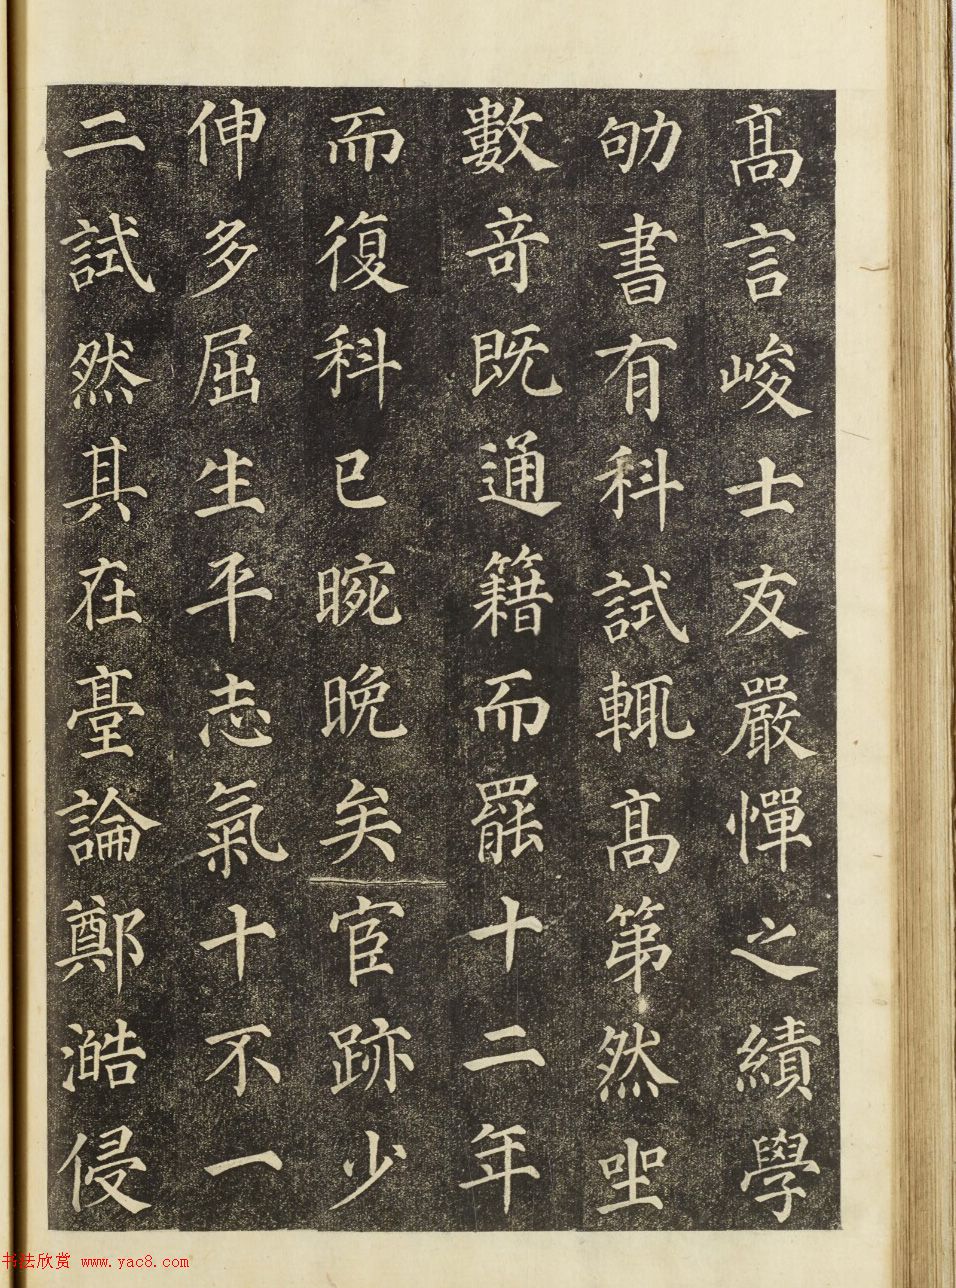 高言峻士友嚴憚之績學
劬書有科試輒高第然坐
數奇既通籍而罷十二年
而復科已晼晚矣宦跡少
伸多屈生平志氣十不一
二試然其在臺論鄭澔侵
书法欣赏 www.yac8.com